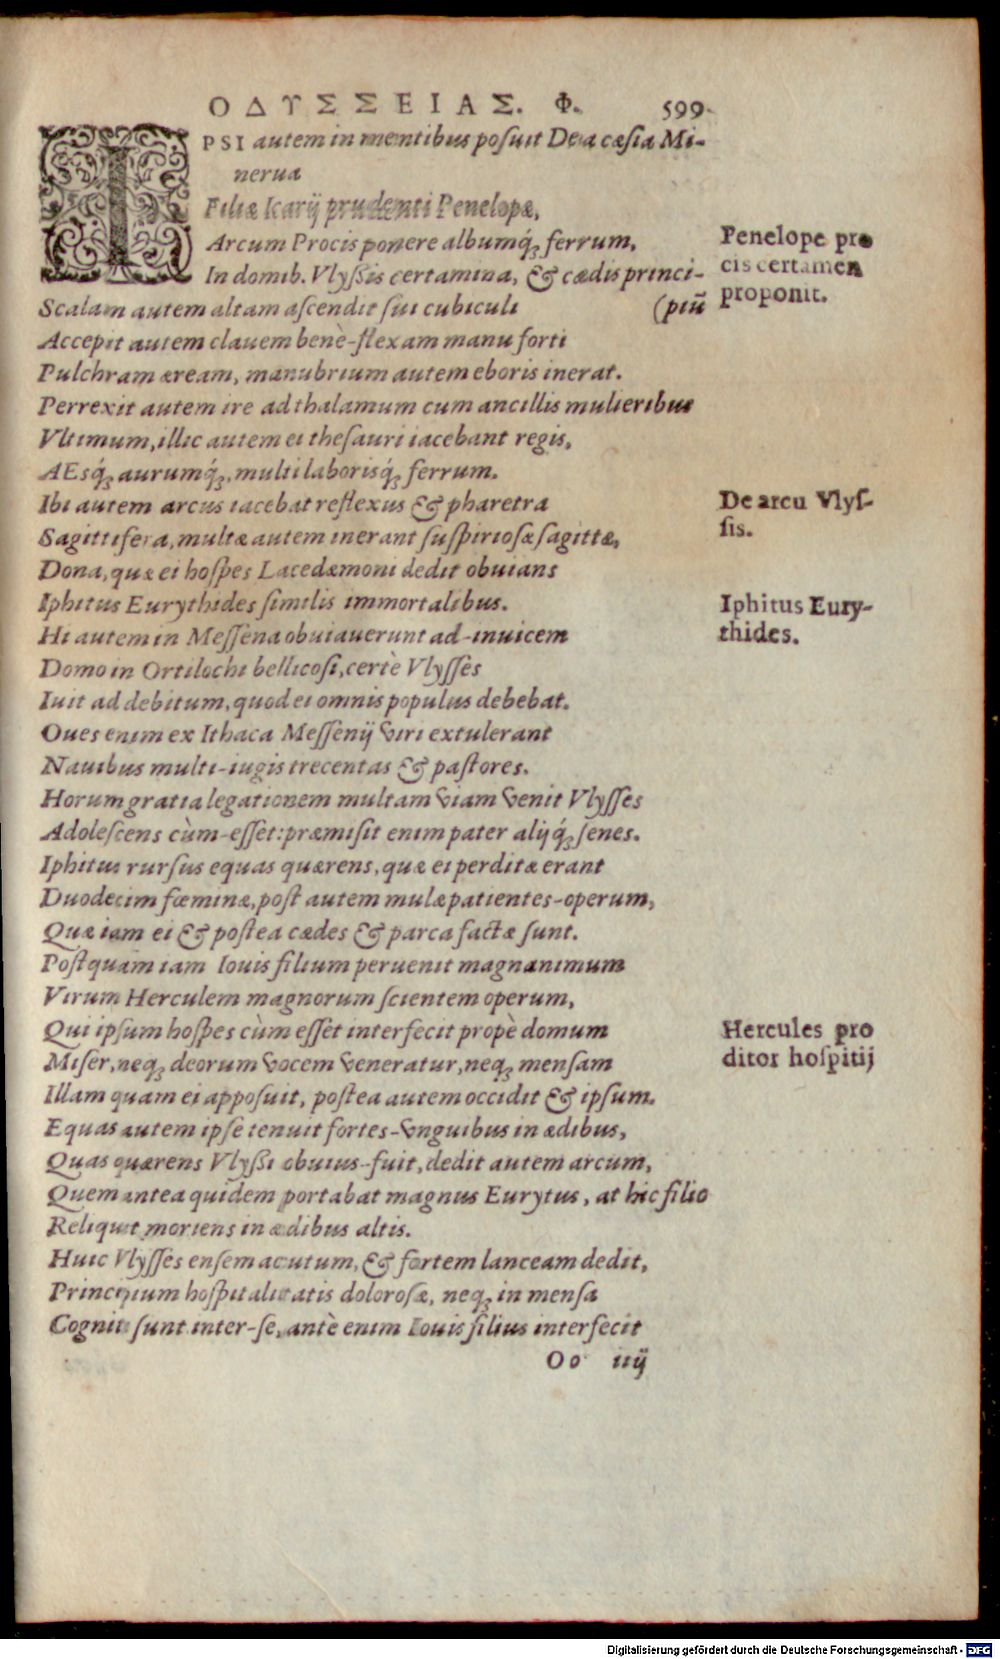 ΟΔΥΣΣΕΙΑΣ. Φ. 599
IPSI autem in mentibus posuit Dea cæsia Mi-
nerua
Filiæ Icarij prudenti Penelopæ,
Arcum Procis ponere albumq́ꝫ ferrum,
In domib. Vlyſsis certamina, & cædis princi-
(piũ
Scalam autem altam aſcendit ſui cubiculi
Accepit autem clauem benè-flexam manu forti
Pulchram æream, manubrium autem eboris inerat.
Perrexit autem ire ad thalamum cum ancillis mulieribus
Vltimum, illic autem ei theſauri iacebant regis,
AEsq́ꝫ aurumq́ꝫ, multi laborisq́ꝫ ferrum.
Ibi autem arcus iacebat reflexus & pharetra
Sagittifera, multæ autem inerant ſuſpirioſæ ſagittæ,
Dona, quæ ei hoſpes Lacedæmoni dedit obuians
Iphitus Eurythides ſimilis immortalibus.
Hi autem in Meſſena obuiauerunt ad-inuicem
Domo in Ortilochi bellicoſi, certè Vlyſſes
Iuit ad debitum, quod ei omnis populus debebat.
Oues enim ex Ithaca Meſſenij viri extulerant
Nauibus multi-iugis trecentas & paſtores.
Horum gratia legationem multam viam venit Vlyſſes
Adoleſcens cùm-eſſet: præmiſit enim pater alijq́ꝫ ſenes.
Iphitus rurſus equas quærens, quæ ei perditæ erant
Duodecim fœminæ, poſt autem mulæ patientes-operum,
Quæ iam ei & poſtea cædes & parca factæ ſunt.
Poſtquam iam Iouis filium peruenit magnanimum
Virum Herculem magnorum ſcientem operum,
Qui ipſum hoſpes cùm eſſet interfecit propè domum
Miſer, neqꝫ deorum vocem veneratur, neqꝫ menſam
Illam quam ei appoſuit, poſtea autem occidit & ipſum.
Equas autem ipſe tenuit fortes-vnguibus in ædibus,
Quas quærens Vlyſsi obuius-fuit, dedit autem arcum,
Quem antea quidem portabat magnus Eurytus, at hic filio
Reliquit moriens in ædibus altis.
Huic Vlyſſes enſem acutum, & fortem lanceam dedit,
Principium hoſpitalitatis doloroſæ, neqꝫ in menſa
Cogniti ſunt inter-ſe, antè enim Iouis filius interfecit
Oo iiij
Penelope pro
cis certamen
proponit.
De arcu Vlyſ-
ſis.
Iphitus Eury-
thides.
Hercules pro
ditor hoſpitij
Digitalisierung gefördert durch die Deutsche Forschungsgemeinschaft - DFG